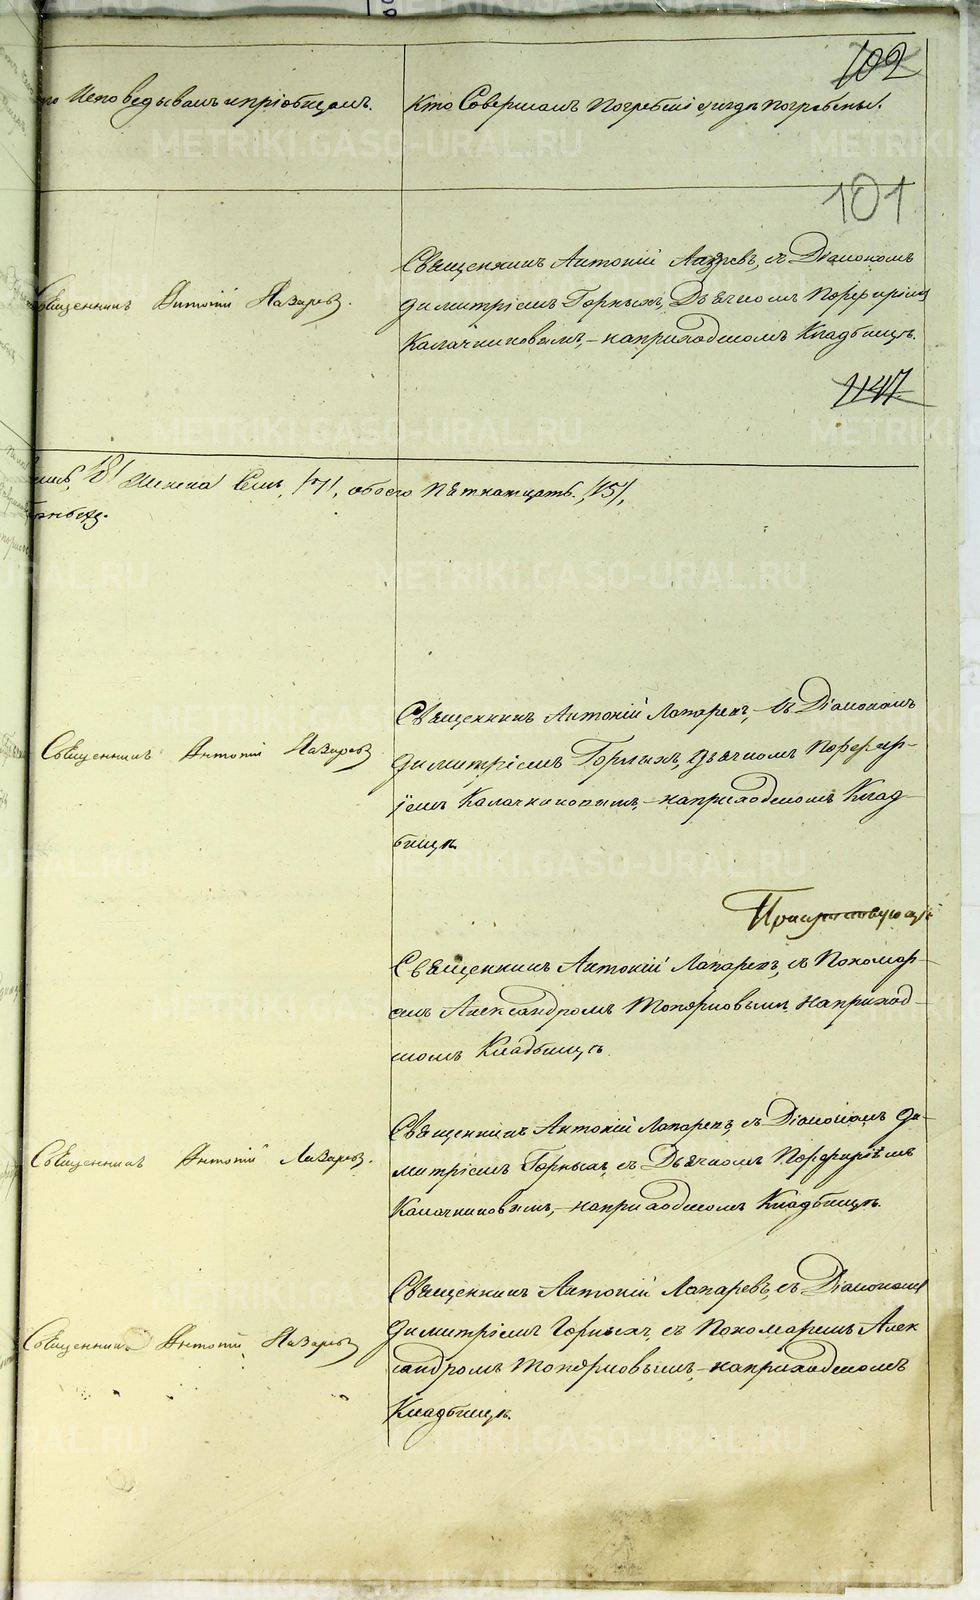 102
то Исповедывалъ и пріобщалъ.
Кто Совершалъ Погребеніе, и гдѣ погребены.
101
Священникъ Антоній Лазаревъ.
Священникъ Антоній Лазаревъ, съ Діакономъ
Димитріемъ Горныхъ, Дьячкомъ Порфиріемъ
Калачниковымъ, – на приходскомъ Кладбищѣ.
1147
8/ Женска Семь, /7/, обоего Пятнатцать. /15/,
Священникъ Антоній Лазаревъ
Священникъ Антоній Лазаревъ, – съ Діакономъ
Димитріемъ Горныхъ, Дьячкомъ Порфир-
іемъ Калачниковымъ, – на приходскомъ Клад-
бищѣ.
Присутствующій
Священникъ Антоній Лазаревъ, съ Пономар-
емъ Александромъ Топорковымъ, на приход-
скомъ Кладбищѣ.
Священникъ Антоній Лазаревъ.
Священникъ Антоній Лазаревъ, съ Діакономъ Ди-
митріемъ Горныхъ, съ Дьячкомъ Порфиріемъ
Калачниковымъ, – на приходскомъ Кладбищѣ.
Священникъ Антоній Лазаревъ
Священникъ Антоній Лазаревъ, съ Діакономъ
Димитріемъ Горныхъ, съ Пономаремъ Алек
сандромъ Топорковымъ, – на приходскомъ
Кладбищѣ.